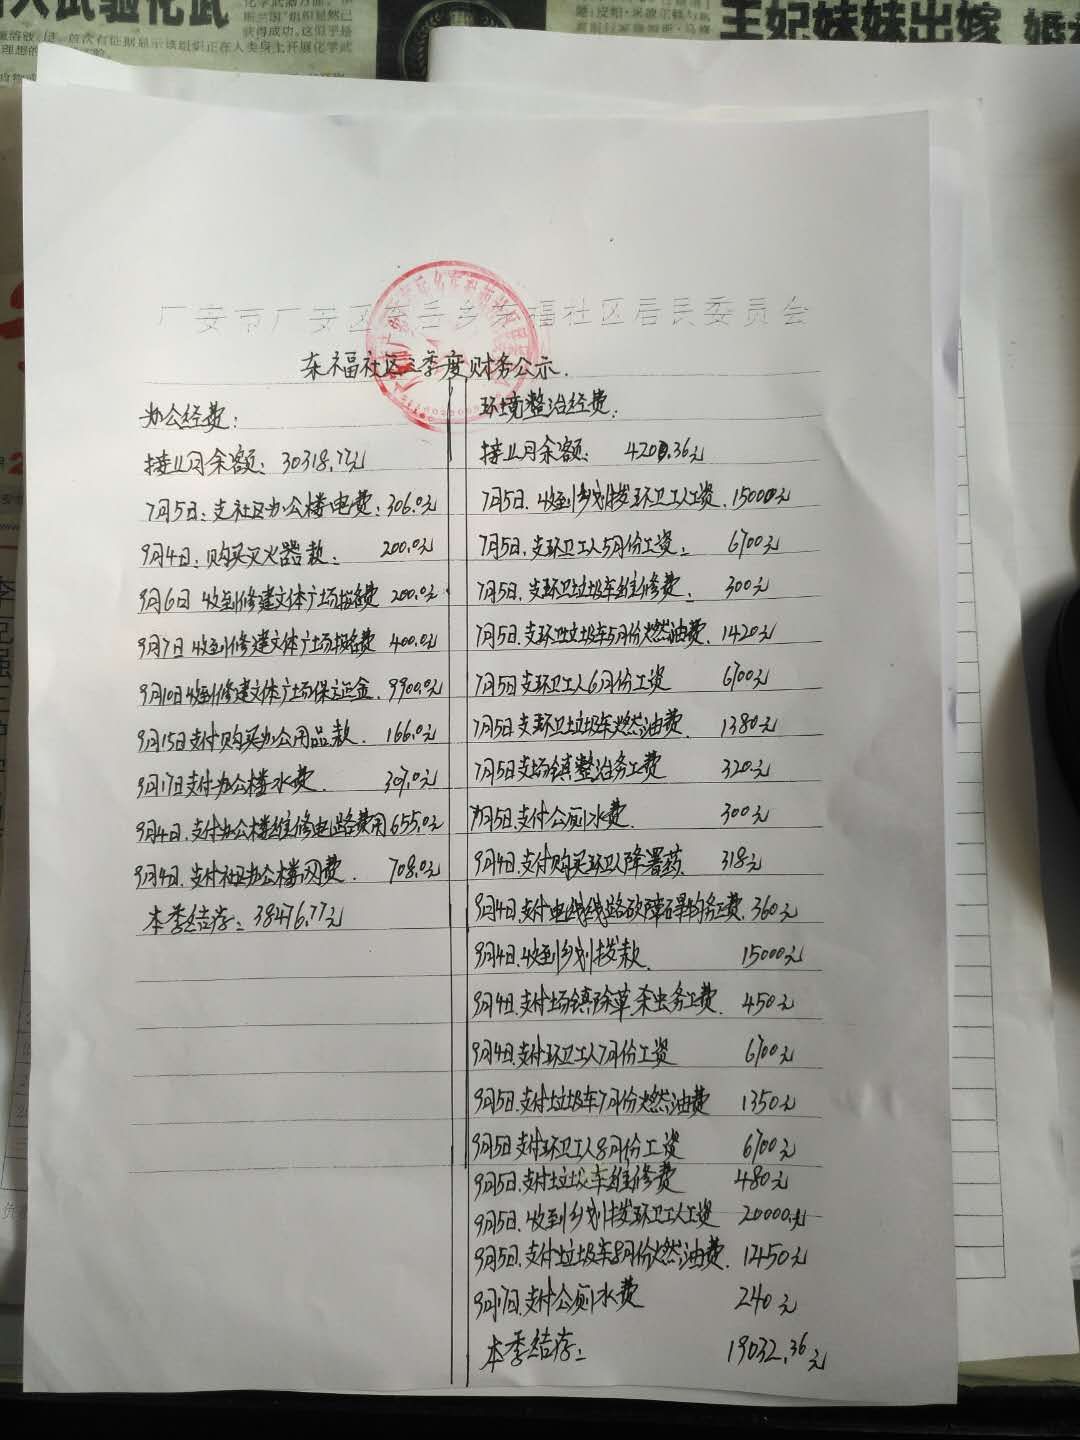 人试验化武
王妃妹妹出嫁
广安市广安区东岳乡东福社区居民委员会
东福社区三季度财务公示.
办公经费:
接上月余额: 30318.77元
7月5日: 支社区办公楼电费: 306.0元
9月4日: 购买灭火器款: 200.0元
9月6日 收到修建文体广场报名费 200.0元
9月7日 收到修建文体广场报名费 400.0元
9月10日收到修建文体广场保证金. 9900.0元
9月15日支付购买办公用品款. 166.0元
9月17日支付办公楼水费. 307.0元
9月4日.支付办公楼维修电路费用 655.0元
9月4日.支付社区办公楼网费. 708.0元
本季结存: 38476.77元
环境整治经费:
接上月余额: 4200.36元
7月5日.收到乡划拨环卫工人工资. 15000元
7月5日.支环卫工人5月份工资: 6700元
7月5日.支环卫垃圾车维修费. 300元
7月5日.支环卫垃圾车5月份燃油费. 1420元
7月5日支环卫工人6月份工资 6700元
7月5日支环卫垃圾车燃油费. 1380元
7月5日支场镇整治务工费 320元
7月5日.支付公厕水费. 300元
9月4日.支付购买环卫人降署药. 318元
9月4日.支付电线线路砍障碍物务工费. 360元
9月4日.收到乡划拨款. 15000元
9月4日.支付场镇除草.杀虫务工费. 450元
9月4日.支付环卫工人7月份工资 6700元
9月5日.支付垃圾车7月份燃油费 1350元
9月5日支付环卫工人8月份工资 6700元
9月5日.支付垃圾车维修费 480元
9月5日.收到乡划拨环卫工人工资 20000元
9月5日.支付垃圾车8月份燃油费. 1450元
9月17日.支付公厕水费 240元
本季结存: 19032.36元